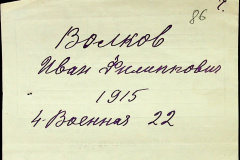 86
Волков
Иван Филиппович
1915
4-Военная 22